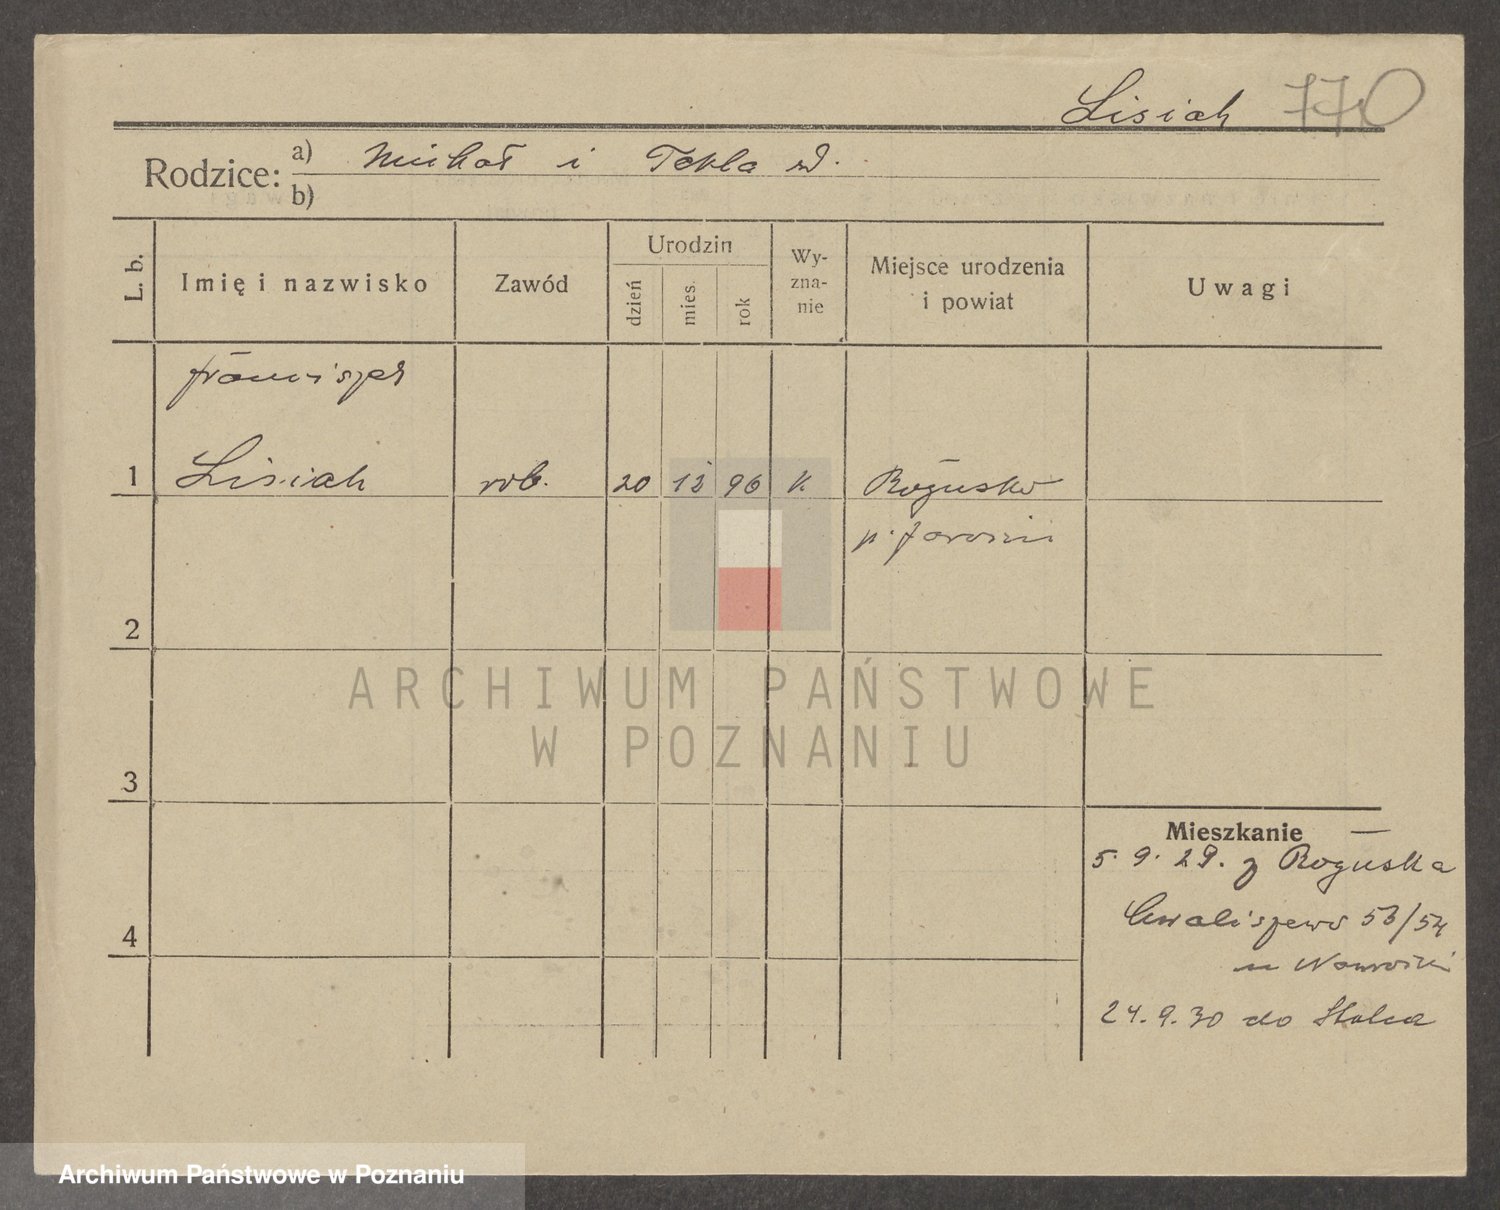 Lisiak 770
Rodzice: a) Michał i Tekla
b)
L. b.
Imię i nazwisko
Zawód
Urodzin
dzień
mies.
rok
Wy-
zna-
nie
Miejsce urodzenia
i powiat
Uwagi
Franciszek
1 Lisiak rob. 20 12 96 k Rogusko
p. Jarocin
2
3
4
Mieszkanie
5. 9. 29. z Roguska
Chwaliszewo 53/54
u Nawrocki
24. 9. 30 do
ARCHIWUM PAŃSTWOWE
W POZNANIU
Archiwum Państwowe w Poznaniu